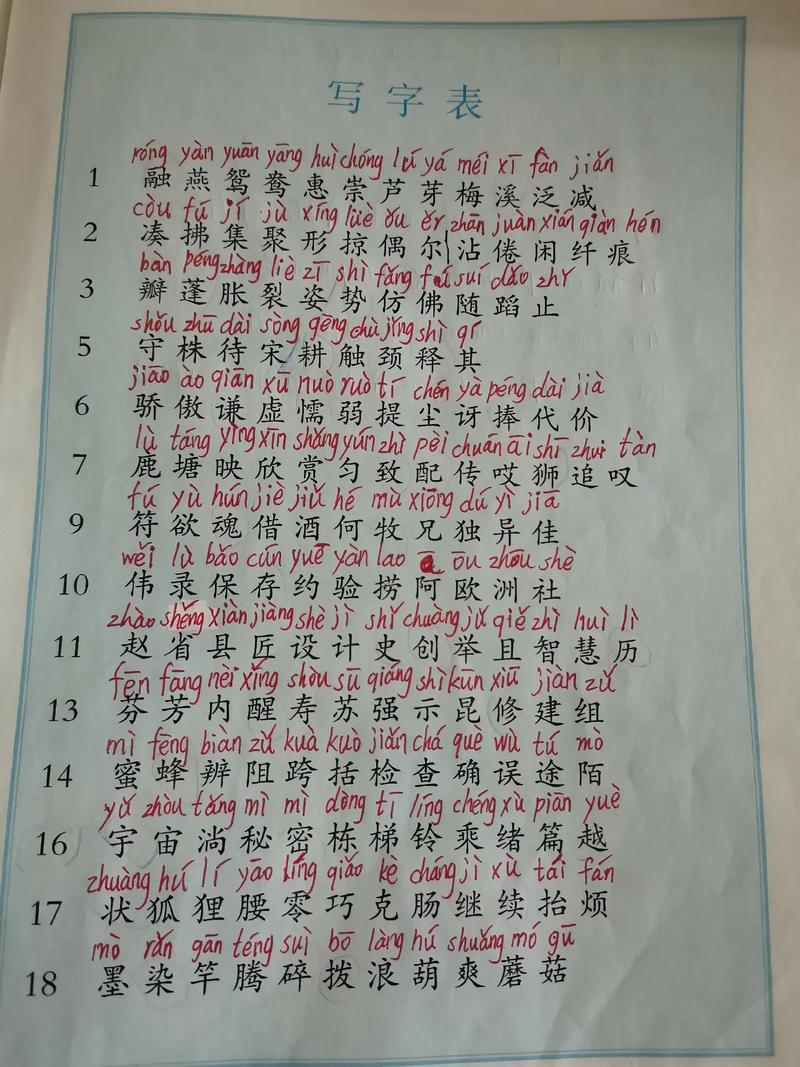 写字表
róng yàn yuān yāng huì chóng lú yá méi xī fàn jiǎn
1 融燕鸳鸯惠崇芦芽梅溪泛减
còu fú jí jù xíng lüè ǒu ěr zhān juàn xián qiàn hén
2 凑拂集聚形掠偶尔沾倦闲纤痕
bàn péng zhàng liè zī shì fǎng fú suí dǎo zhǐ
3 瓣蓬胀裂姿势仿佛随蹈止
shǒu zhū dài sòng gēng chù jǐng shì qí
5 守株待宋耕触颈释其
jiāo ào qiān xū nuò ruò tí chén yà pěng dài jià
6 骄傲谦虚懦弱提尘讶捧代价
lù táng yìng xīn shǎng yún zhì pèi chuán āi shī zhuī tàn
7 鹿塘映欣赏匀致配传哎狮追叹
fú yù hún jiè jiǔ hé mù xiōng dú yì jiā
9 符欲魂借酒何牧兄独异佳
wěi lù bǎo cún yuē yàn lao ā ōu zhōu shè
10 伟录保存约验捞阿欧洲社
zhào shěng xiàn jiàng shè jì shǐ chuàng jǔ qiě zhì huì lì
11 赵省县匠设计史创举且智慧历
fēn fāng nèi xǐng shòu sū qiáng shì kūn xiū jiàn zǔ
13 芬芳内醒寿苏强示昆修建组
mì fēng biàn zǔ kuà kuò jiǎn chá què wù tú mò
14 蜜蜂辨阻跨括检查确误途陌
yǔ zhòu tǎng mì mì dòng tī líng chéng xù piān yuè
16 宇宙淌秘密栋梯铃乘绪篇越
zhuàng hú lí yāo líng qiǎo kè cháng jì xù tái fán
17 状狐狸腰零巧克肠继续抬烦
mò rǎn gān téng suì bō làng hú shuǎng mó gū
18 墨染竿腾碎拨浪葫爽蘑菇